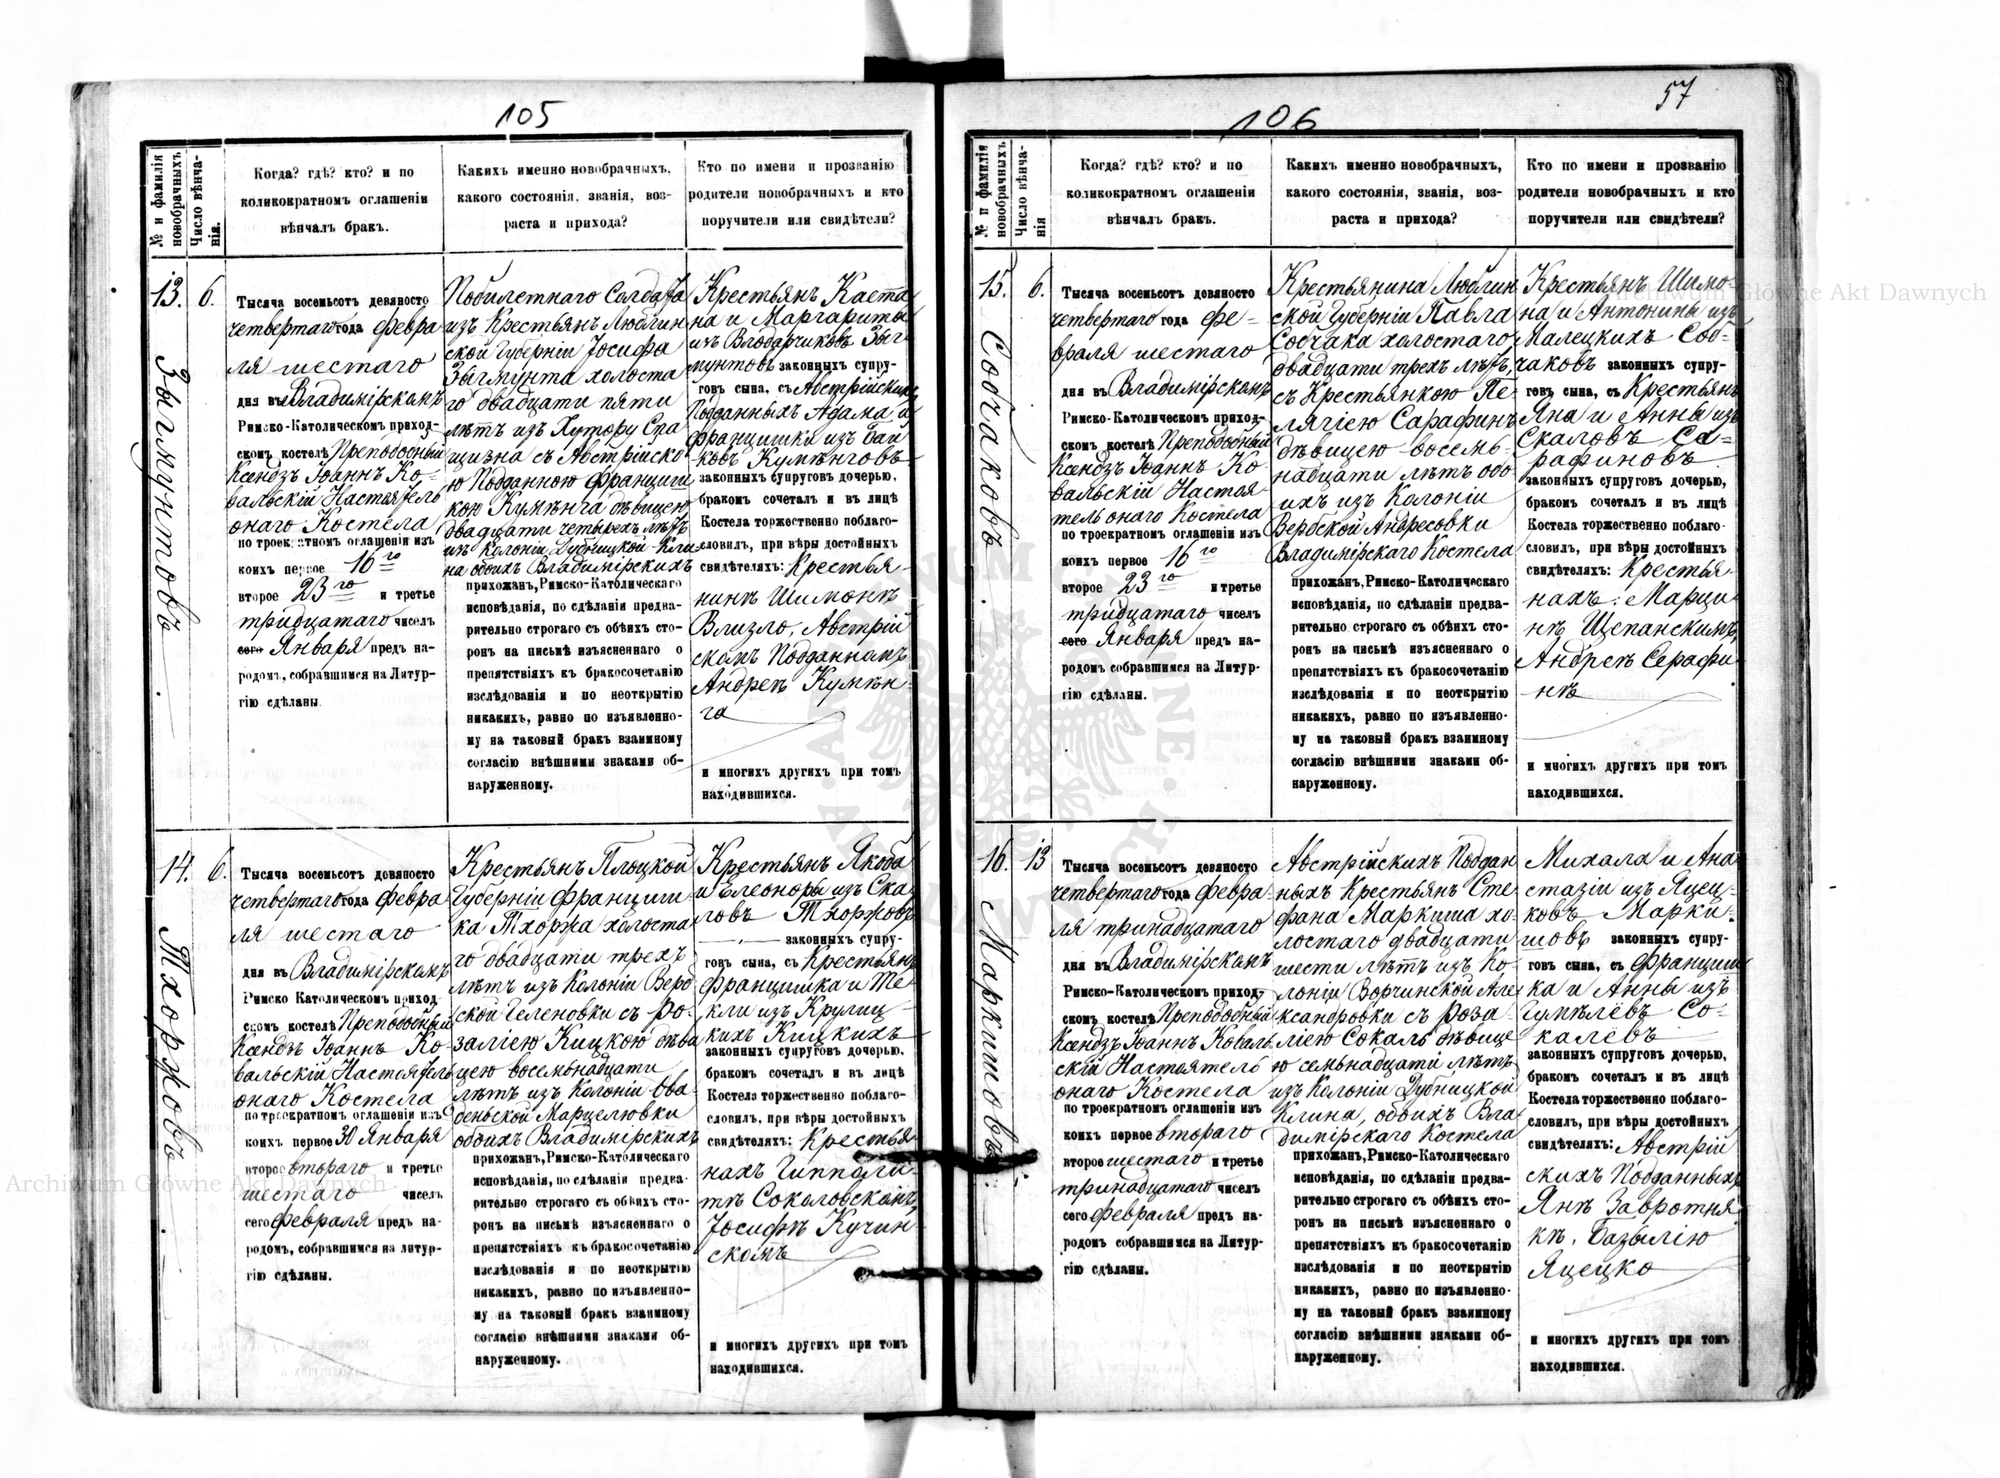 105
№ и фамилія новобрачныхъ
Число вѣнча-
нія.
Когда? гдѣ? кто? и по
коликократномъ оглашеніи
вѣнчалъ бракъ.
Какихъ именно новобрачныхъ,
какого состоянія, званія, воз-
раста и прихода?
Кто по имени и прозванію
родители новобрачныхъ и кто
поручители или свидѣтели?
13.
Зыгмунтовъ
6.
Тысяча восемьсотъ девяносто
четвертаго года февра
ля шестаго
дня въ Владимірскомъ
Римско-Католическомъ приход-
скомъ костелѣ Преподобный
Ксендзъ Іоаннъ Ко-
вальскій Настоятель
онаго Костела
по троекратномъ оглашеніи изъ
коихъ первое 16го
второе 23го и третье
тридцатаго чиселъ
сего Января предъ на-
родомъ, собравшимся на Литур-
гію сдѣланы
Побилетнаго Солдата
изъ Крестьянъ Люблин
ской Губерніи Іосифа
Зыгмунта холоста
го двадцати пяти
лѣтъ изъ Хутору Спа
щизна съ Австрійско
ю Подданною Францишк
кою Кумѣнга дѣвицею
двадцати четырехъ лѣтъ
изъ Колоніи Дубницкой Кли
на обоихъ Владимірскихъ
прихожанъ, Римско-Католическаго
исповѣданія, по сдѣланіи предва-
рительно строгаго съ обѣихъ сто-
ронъ на письмѣ изъясненнаго о
препятствіяхъ къ бракосочетанію
изслѣдованія и по неоткрытію
никакихъ, равно по изъявленно-
му на таковый бракъ взаимному
согласію внѣшними знаками об-
наруженному.
Крестьянъ Каэта
на и Маргариты
изъ Влодарчиковъ Зыг
мунтовъ законныхъ супру-
говъ сына, съ Австрійскихъ
Подданныхъ Адама и
Францишки изъ Бай
ковъ Кумѣнговъ
законныхъ супруговъ дочерью,
бракомъ сочеталъ и въ лицѣ
Костела торжественно поблаго-
словилъ, при вѣры достойныхъ
свидѣтеляхъ: Крестья
нинъ Шимонъ
Влизло, Австрій
скомъ Подданномъ
Андреѣ Кумѣн-
га
и многихъ другихъ при томъ
находившихся.
14.
Тхоржовъ
6.
Тысяча восемьсотъ девяносто
четвертаго года февра
ля шестаго
дня въ Владимірскомъ
Римско Католическомъ приход
скомъ костелѣ Преподобный
Ксендзъ Іоаннъ Ко
вальскій Настоятель
онаго Костела
по троекратномъ оглашеніи изъ
коихъ первое 30 Января
второе втораго и третье
шестаго чиселъ
сего февраля предъ на-
родомъ, собравшимся на литур-
гію сдѣланы.
Крестьянъ Плоцкой
Губерніи Францишк
ка Тхоржа холоста
го двадцати трехъ
лѣтъ изъ Колоніи Верб
ской Геленовки съ Ро-
заліею Кицкою дѣви
цею восемьнадцати
лѣтъ изъ Колоніи Ова
деньской Марцелювки
обоихъ Владимірскихъ
прихожанъ, Римско-Католическаго
исповѣданія, по сдѣланіи предва-
рительно строгаго съ обѣихъ сто-
ронъ на письмѣ изъясненнаго о
препятствіяхъ къ бракосочетанію
изслѣдованія и по неоткрытію
никакихъ, равно по изъявленно-
му на таковый бракъ взаимному
согласію внѣшними знаками об-
наруженному.
Крестьянъ Якоба
и Елеоноры изъ Ска
ловъ Тхоржовъ
законныхъ супру-
говъ сына, съ Крестьянъ
Францишка и Те
кли изъ Крулиц
кихъ Кицкихъ
законныхъ супруговъ дочерью,
бракомъ сочеталъ и въ лицѣ
Костела торжественно поблаго-
словилъ, при вѣры достойныхъ
свидѣтеляхъ: Крестья
нахъ Гипполи-
тѣ Сокаловскомъ,
Іосифѣ Кучин
скомъ
и многихъ другихъ при томъ
находившихся.
57
106
№ и фамилія новобрачныхъ
Число вѣнча-
нія
Когда? гдѣ? кто? и по
коликократномъ оглашеніи
вѣнчалъ бракъ.
Какихъ именно новобрачныхъ,
какого состоянія, званія, воз-
раста и прихода?
Кто по имени и прозванію
родители новобрачныхъ и кто
поручители или свидѣтели?
15.
Собчаковъ
6.
Тысяча восемьсотъ девяносто
четвертаго года фе-
враля шестаго
дня въ Владимірскомъ
Римско-Католическомъ приход-
скомъ костелѣ Преподобный
Ксендзъ Іоаннъ Ко
вальскій Настоя-
тель онаго Костела
по троекратномъ оглашеніи изъ
коихъ первое 16го
второе 23го и третье
тридцатаго чиселъ
сего Января предъ на-
родомъ собравшимся на Литур-
гію сдѣланы.
Крестьянина Люблин
ской Губерніи Павла
Собчака холостаго
двадцати трехъ лѣтъ,
съ Крестьянкою Пе
лягіею Сарафинъ
дѣвицею восемь-
надцати лѣтъ обо
ихъ изъ Колоніи
Вербской Андресовки
Владимірскаго Костела
прихожанъ, Римско-Католическаго
исповѣданія, по сдѣланіи предва-
рительно строгаго съ обѣихъ сто-
ронъ на письмѣ изъясненнаго о
препятствіяхъ къ бракосочетанію
изслѣдованія и по неоткрытію
никакихъ, равно по изъявленно-
му на таковый бракъ взаимному
согласію внѣшними знаками об-
наруженному.
Крестьянъ Шимо-
на и Антонины изъ
Малецкихъ Соб-
чаковъ законныхъ супру-
говъ сына, съ Крестьянъ
Яна и Анны изъ
Скаловъ Са-
рафиновъ
законныхъ супруговъ дочерью,
бракомъ сочеталъ и въ лицѣ
Костела торжественно поблаго-
словилъ, при вѣры достойныхъ
свидѣтеляхъ: Крестья-
нахъ: Марци-
нѣ Щепанскимъ,
Андреѣ Серафи-
нѣ
и многихъ другихъ при томъ
находившихся.
16.
Маркишовъ
13
Тысяча восемьсотъ девяносто
четвертаго года февра-
ля тринадцатаго
дня въ Владимірскомъ
Римско-Католическомъ приход-
скомъ костелѣ Преподобный
Ксендзъ Іоаннъ Коваль
скій Настоятель
онаго Костела
по троекратномъ оглашеніи изъ
коихъ первое втораго
второе шестаго и третье
тринадцатаго чиселъ
сего февраля предъ на-
родомъ собравшимся на Литур-
гію сдѣланы.
Австрійскихъ Поддан
ныхъ Крестьянъ Сте
фана Маркиша хо-
лостаго двадцати
шести лѣтъ изъ Ко-
лоніи Ворчинской Але
ксандровки съ Роза
ліею Сокаль дѣвице
ю семьнадцати лѣтъ
изъ Колоніи Дубницкой
Клина, обоихъ Вла
димірскаго Костела
прихожанъ, Римско-Католическаго
исповѣданія, по сдѣланіи предва-
рительно строгаго съ обѣихъ сто-
ронъ на письмѣ изъясненнаго о
препятствіяхъ къ бракосочетанію
изслѣдованія и по неоткрытію
никакихъ, равно по изъявленно-
му на таковый бракъ взаимному
согласію внѣшними знаками об-
наруженному.
Михала и Ана
стазіи изъ Яцец-
ковъ Марки-
шовъ законныхъ супру-
говъ сына, съ Францишк
ка и Анны изъ
Гумѣлёвъ Со-
калёвъ
законныхъ супруговъ дочерью,
бракомъ сочеталъ и въ лицѣ
Костела торжественно поблаго-
словилъ, при вѣры достойныхъ
свидѣтеляхъ: Австрій
скихъ Подданныхъ
Янѣ Завротня
кѣ, Базылію
Яцецко
и многихъ другихъ при томъ
находившихся.
Archiwum Główne Akt Dawnych
Archiwum Główne Akt Dawnych